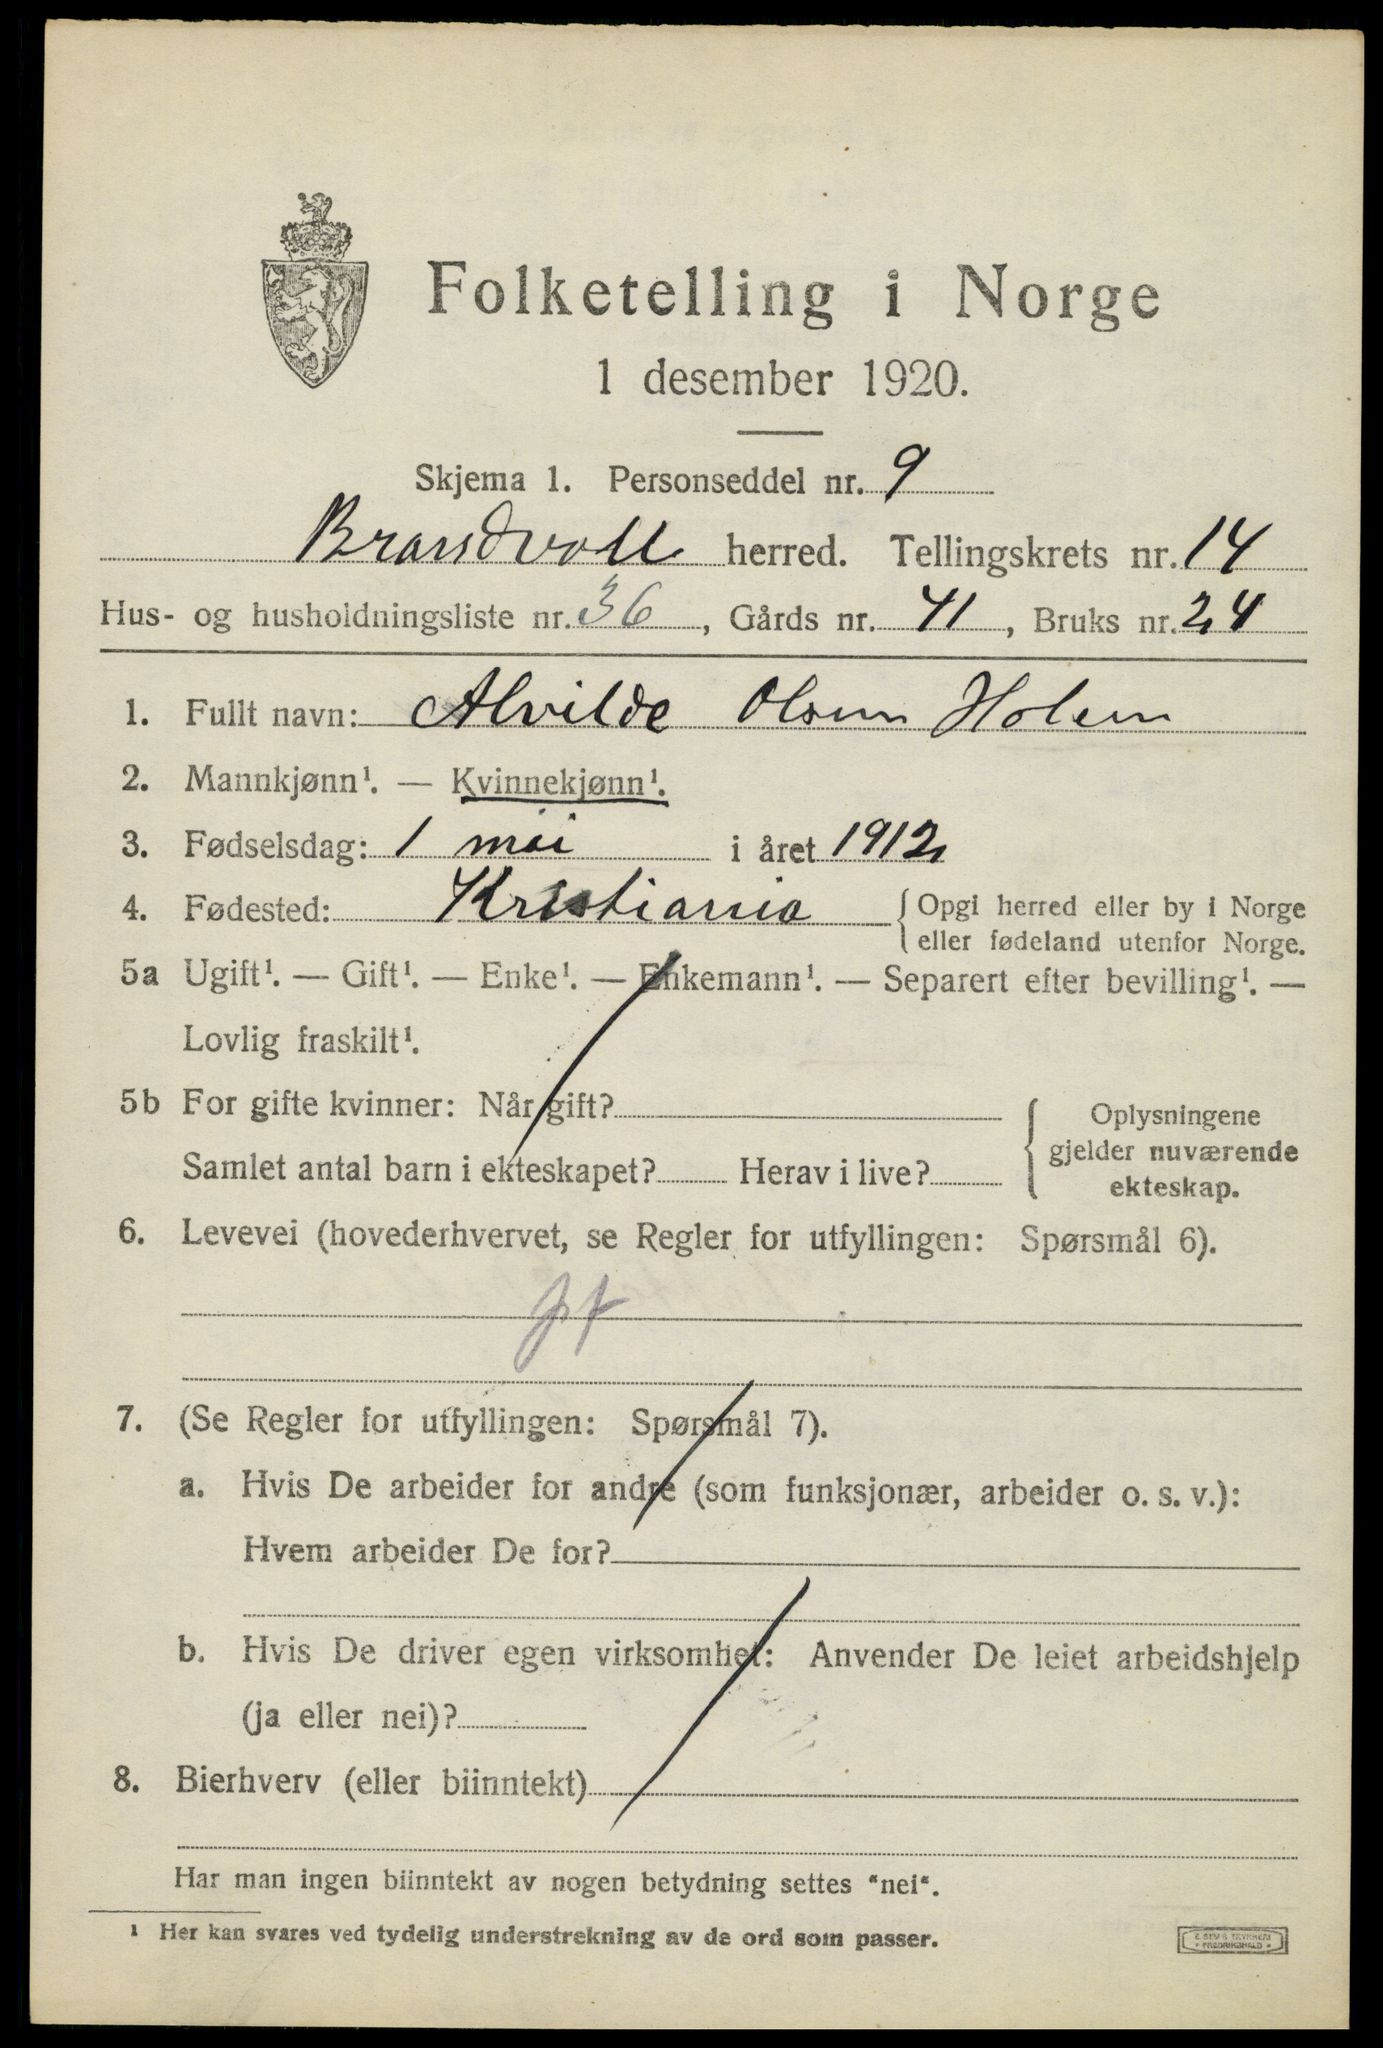 Folketelling i Norge
1 desember 1920.
Skjema 1. Personseddel nr. 9
Brandvoll herred. Tellingskrets nr. 14
Hus- og husholdningsliste nr. 36, Gårds nr. 41, Bruks nr. 24
1. Fullt navn: Alvilde Olsen Holen
2. Mannkjønn¹. — Kvinnekjønn¹.
3. Fødselsdag: 1 mai i året 1912
4. Fødested: Kristiania {Opgi herred eller by i Norge
eller fødeland utenfor Norge.
5a Ugift¹. — Gift¹. — Enke¹. — Enkemann¹. — Separert efter bevilling¹. —
Lovlig fraskilt¹.
5b For gifte kvinner: Når gift?
Samlet antal barn i ekteskapet? Herav i live?
{Oplysningene
gjelder nuværende
ekteskap.
6. Levevei (hovederhvervet, se Regler for utfyllingen: Spørsmål 6).
7. (Se Regler for utfyllingen: Spørsmål 7).
a. Hvis De arbeider for andre (som funksjonær, arbeider o. s. v.):
Hvem arbeider De for?
b. Hvis De driver egen virksomhet: Anvender De leiet arbeidshjelp
(ja eller nei)?
8. Bierhverv (eller biinntekt)
Har man ingen biinntekt av nogen betydning settes "nei".
¹ Her kan svares ved tydelig understrekning av de ord som passer.